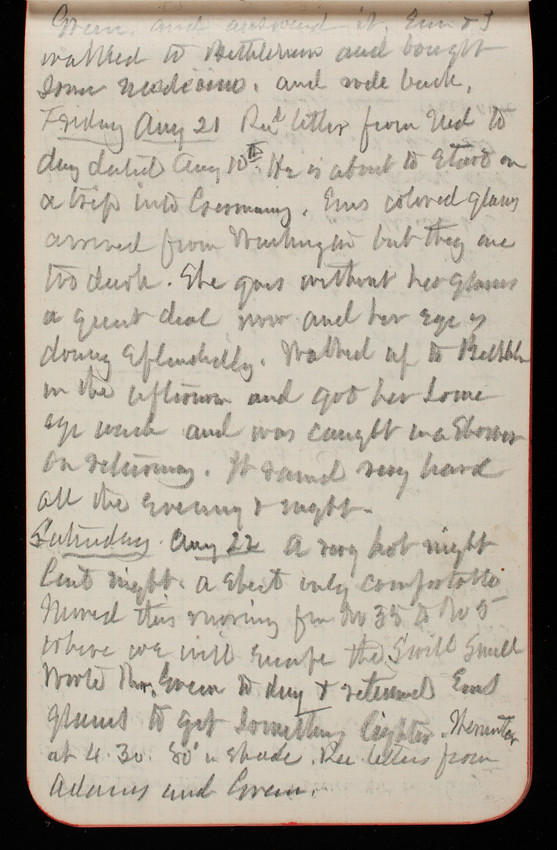 Green. and answered it. Em & I
walked to Bethlehem and bought
some medicine. and rode back.
Friday Aug 21 Recd letter from Ned to
day dated Aug 10th. He is about to start on
a trip into Germany. Ems colored glasses
arrived from Washington but they are
too dark. She goes without her glasses
a great deal now and her eye is
doing splendidly. Walked up to Bethlehem
in the afternoon and got her some
eye wash and was caught in a shower
on returning. It rained very hard
all the evening & night.
Saturday Aug 22 A very hot night
last night. a sheet only comfortable
Moved this morning from No 35 to No 5
where we will escape the swill smell
Wrote Mr. Green to day & returned Ems
glasses to get something lighter. Thermter
at 4.30. 80° in shade. Rec letters from
Adams and Green.